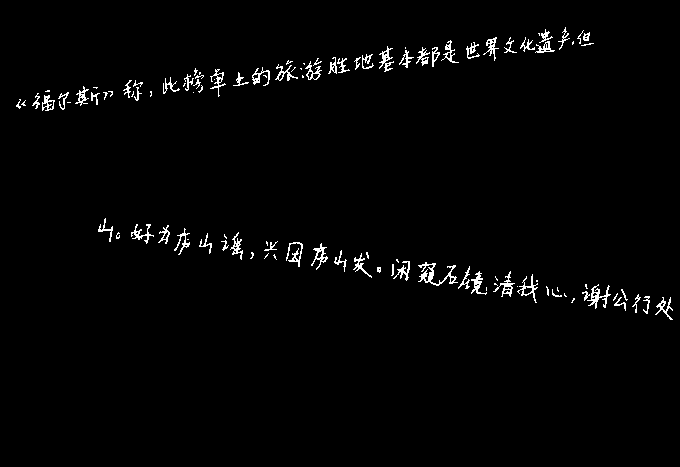 《福尔斯》称，此榜单上的旅游胜地基本都是世界文化遗产，但
山。好为庐山谣，兴因庐山发。闲窥石镜清我心，谢公行处